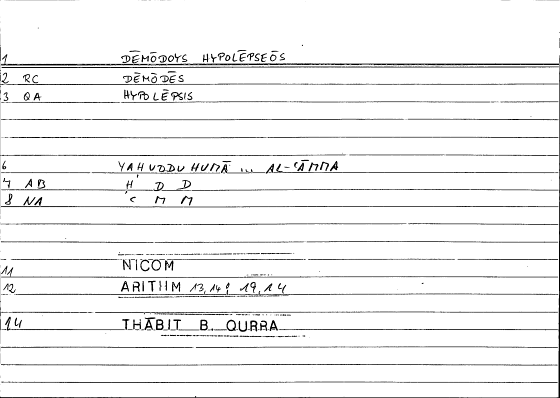 1 DĒMŌDOYS HYPOLĒPSEŌS
2 RC DĒMŌDĒS
3 QA HYPOLĒPSIS
6 YAHUDDUHUMĀ ... AL-ʿĀMMA
7 AB Ḥ D D
8 NA ʿ M M
11 NICOM
12 ARITHM 13,14; 19,14
14 THĀBIT B. QURRA